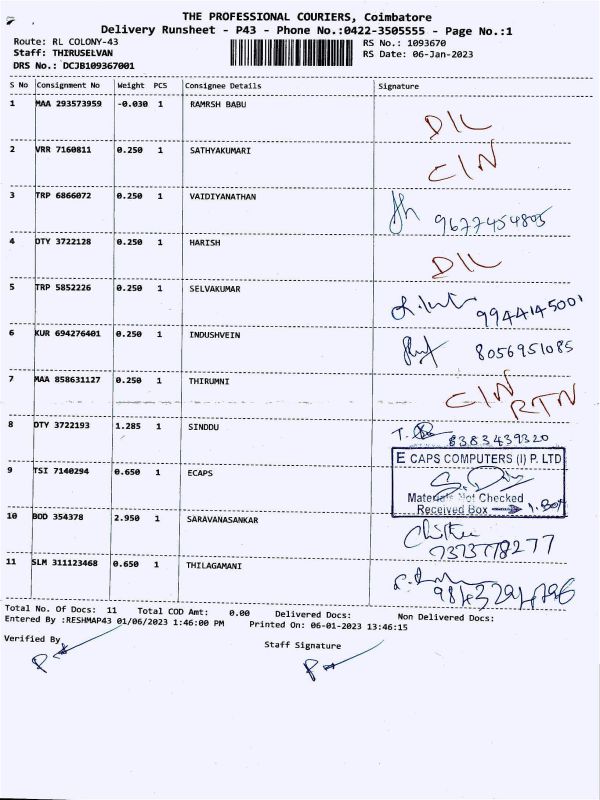 THE PROFESSIONAL COURIERS, Coimbatore
Delivery Runsheet - P43 - Phone No.:0422-3505555 - Page No.:1
Route: RL COLONY-43
RS No.: 1093670
Staff: THIRUSELVAN
RS Date: 06-Jan-2023
DRS No.: DCJB109367001
S No Consignment No Weight PCS Consignee Details Signature
1 MAA 293573959 -0.030 1 RAMRSH BABU D/L
2 VRR 7160811 0.250 1 SATHYAKUMARI C/N
3 TRP 6866072 0.250 1 VAIDIYANATHAN 9677454805
4 OTY 3722128 0.250 1 HARISH D/L
5 TRP 5852226 0.250 1 SELVAKUMAR 9944145001
6 KUR 694276401 0.250 1 INDUSHVEIN 8056951085
7 MAA 858631127 0.250 1 THIRUMNI C/N
RTN
8 OTY 3722193 1.285 1 SINDDU 8383439320
9 TSI 7140294 0.650 1 ECAPS E CAPS COMPUTERS (I) P. LTD
Materials Not Checked
Received Box 1. Box
10 BOD 354378 2.950 1 SARAVANASANKAR
7373778277
11 SLM 311123468 0.650 1 THILAGAMANI
Total No. Of Docs: 11 Total COD Amt: 0.00 Delivered Docs: Non Delivered Docs:
Entered By :RESHMAP43 01/06/2023 1:46:00 PM Printed On: 06-01-2023 13:46:15
Verified By
Staff Signature